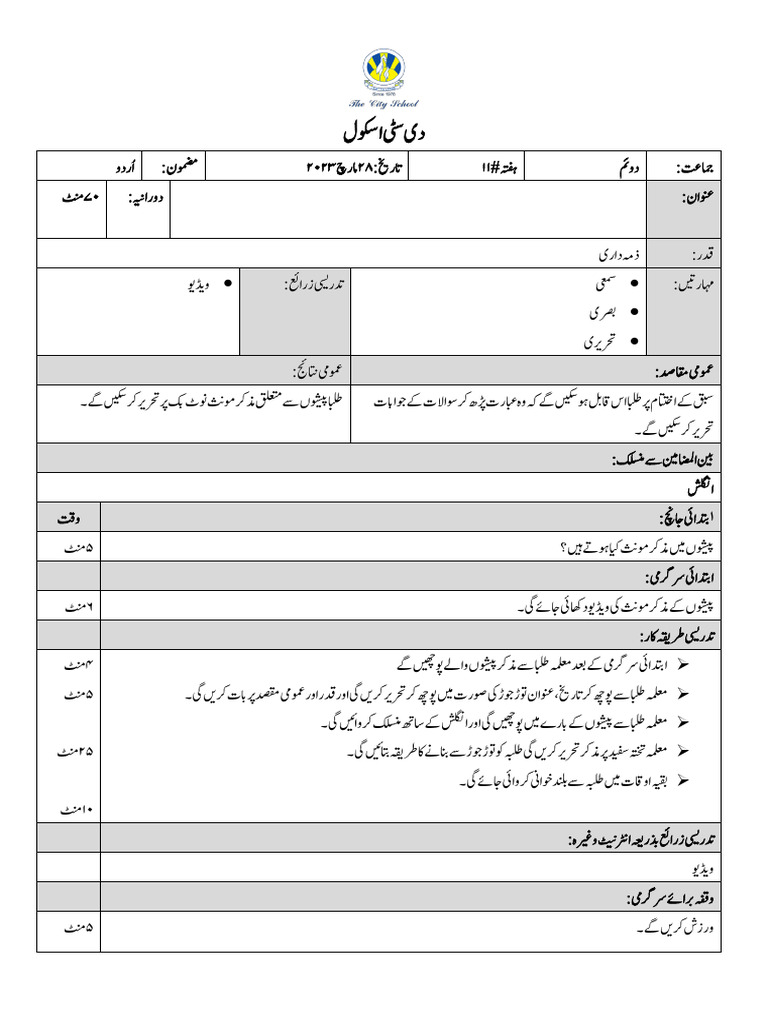 Since 1978
The City School
دی سٹی اسکول
جماعت: دوئم ہفتہ #۱۱ تاریخ: ۲۸ مارچ ۲۰۲۳ مضمون: اُردو
عنوان: دورانیہ: ۷۰ منٹ
قدر: ذمہ داری
مہارتیں: • سمعی تدریسی زرائع: • ویڈیو
• بصری
• تحریری
عمومی مقاصد: عمومی نتائج:
سبق کے اختتام پر طلبا اس قابل ہو سکیں گے کہ وہ عبارت پڑھ کر سوالات کے جوابات طلبا پیشوں سے متعلق مذکر مونث نوٹ بک پر تحریر کر سکیں گے۔
تحریر کر سکیں گے۔
بین المضامین سے منسلک:
انگلش
ابتدائی جانچ: وقت
پیشوں میں مذکر مونث کیا ہوتے ہیں؟ ۵ منٹ
ابتدائی سرگرمی:
پیشوں کے مذکر مونث کی ویڈیو دکھائی جائے گی۔ ۶ منٹ
تدریسی طریقہ کار:
➢ ابتدائی سرگرمی کے بعد معلمہ طلبا سے مذکر پیشوں والے پوچھیں گے ۴ منٹ
➢ معلمہ طلبا سے پوچھ کر تاریخ، عنوان توڑ جوڑ کی صورت میں پوچھ کر تحریر کریں گی اور قدر اور عمومی مقصد پر بات کریں گی۔ ۵ منٹ
➢ معلمہ طلبا سے پیشوں کے بارے میں پوچھیں گی اور انگلش کے ساتھ منسلک کروائیں گی۔
➢ معلمہ تختہ سفید پر مذکر تحریر کریں گی طلبہ کو توڑ جوڑ سے بنانے کا طریقہ بتائیں گی۔ ۲۵ منٹ
➢ بقیہ اوقات میں طلبہ سے بلند خوانی کروائی جائے گی۔
۱۰ منٹ
تدریسی زرائع بذریعہ انٹرنیٹ وغیرہ:
ویڈیو
وقفہ برائے سرگرمی:
ورزش کریں گے۔ ۵ منٹ